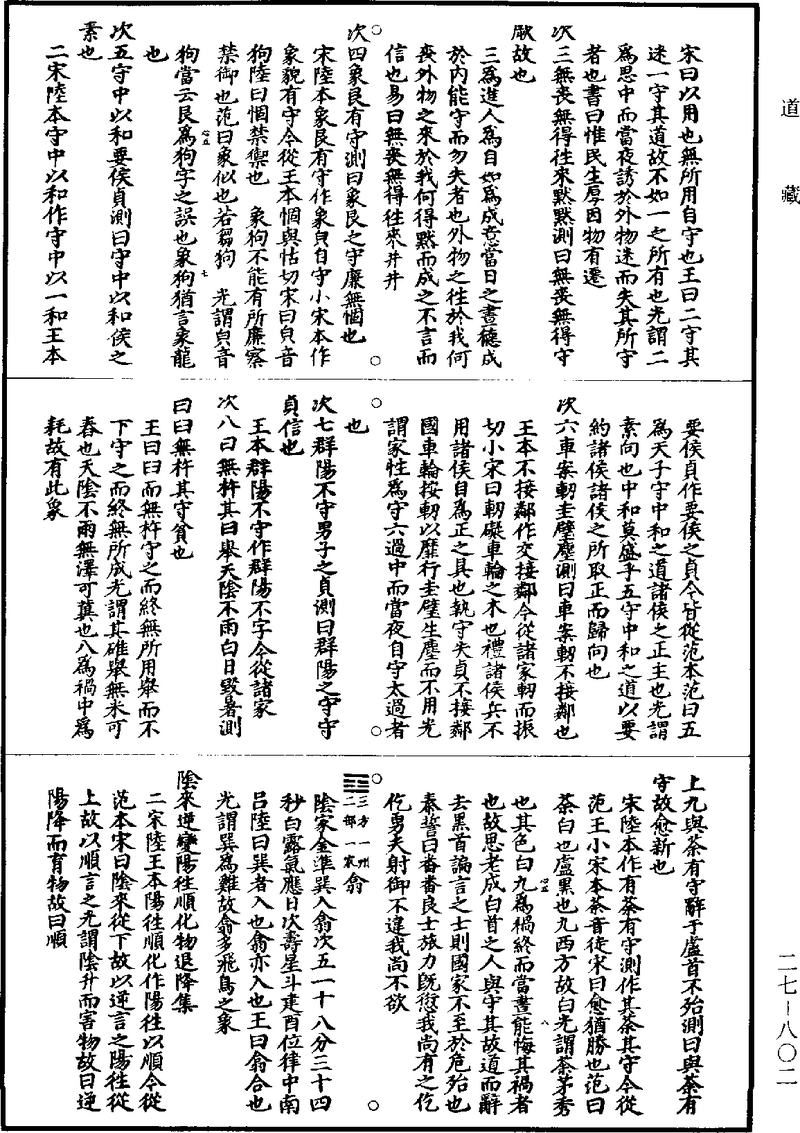 道藏
宋曰以用也無所用自守也王曰二守其
迷一守其道故不如一之所有也光謂二
為思中而當夜誘於外物迷而失其所守
者也書曰惟民生厚因物有遷
次三無喪無得往來黙黙測曰無喪無得守
厥故也
三為進人為自如為成意當日之晝德成
於內能守而勿失者也外物之往於我何
喪外物之來於我何得黙而成之不言而
信也易曰無喪無得往來井井
次四象艮有守測曰象艮之守廉無悃也
宋陸本象艮有守作象㒵自守小宋本作
象貌有守今從王本悃與怙切宋曰㒵音
狗陸曰悃禁禦也 象狗不能有所廉察
禁御也范曰象似也若芻狗 光謂㒵音
狗當云艮為狗字之誤也象狗猶言象龍
也
次五守中以和要侯貞測曰守中以和侯之
素也
二宋陸本守中以和作守中以一和王本
要侯貞作要侯之貞今皆從范本范曰五
為天子守中和之道諸侯之正主也光謂
素向也中和莫盛乎五守中和之道以要
約諸侯諸侯之所取正而歸向也
次六車案軔圭璧塵測曰車案軔不接鄰也
王本不接鄰作交接鄰今從諸家軔而振
切小宋曰軔礙車輪之木也禮諸侯兵不
用諸侯自為正之具也執守失貞不接鄰
國車輪按軔以靡行圭璧生塵而不用光
謂家性為守六過中而當夜自守太過者
也
次七群陽不守男子之貞測曰群陽之守守
貞信也
王本群陽不守作群陽不字今從諸家
次八曰無杵其曰舉天陰不雨白日毀暑測
曰曰無杵其守貧也
王曰曰而無杵守之而終無所用舉而不
下守之而終無所成光謂其碓舉無米可
舂也天陰不雨無澤可冀也八為禍中為
耗故有此象
上九與荼有守辭于盧首不殆測曰與荼有
守故愈新也
宋陸本作有荼有守測作其荼其守今從
范王小宋本荼音徒宋曰愈猶勝也范曰
荼白也盧黑也九西方故白光謂荼茅秀
也其色白九為禍終而當晝能悔其禍者
也故思老成白首之人與守其故道而辭
去黑首諞言之士則國家不至於危殆也
秦誓曰番番良士旅力既愆我尚有之仡
仡勇夫射御不違我尚不欲
三方一州二部一家翕
陰家金準巽入翕次五一十八分三十四
秒白露氣應日次壽星斗建酉位律中南
呂陸曰巽者入也翕亦入也王曰翕合也
光謂巽為雞故翕多飛鳥之象
陰來逆變陽往順化物退降集
二宋陸王本陽往順化作陽往以順今從
范本宋曰陰來從下故以逆言之陽往從
上故以順言之光謂陰升而害物故曰逆
陽降而育物故曰順
二七—八〇二